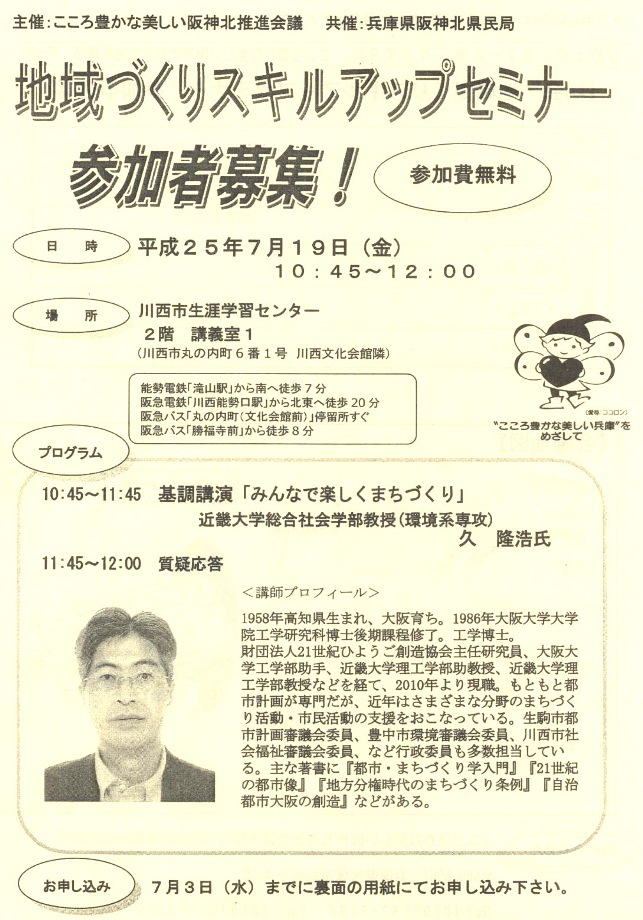 主催：こころ豊かな美しい阪神北推進会議　共催：兵庫県阪神北県民局
地域づくりスキルアップセミナー
参加者募集！
参加費無料
日　時
平成２５年７月１９日（金）
１０：４５～１２：００
場　所
川西市生涯学習センター
２階　講義室１
（川西市丸の内町６番１号　川西文化会館隣）
能勢電鉄「滝山駅」から南へ徒歩７分
阪急電鉄「川西能勢口駅」から北東へ徒歩20分
阪急バス「丸の内町（文化会館前）」停留所すぐ
阪急バス「勝福寺前」から徒歩８分
（愛称：ココロン）
“こころ豊かな美しい兵庫”を
めざして
プログラム
10:45～11:45　基調講演「みんなで楽しくまちづくり」
近畿大学総合社会学部教授（環境系専攻）
久　隆浩氏
11:45～12:00　質疑応答
＜講師プロフィール＞
1958年高知県生まれ、大阪育ち。1986年大阪大学大学
院工学研究科博士後期課程修了。工学博士。
財団法人21世紀ひょうご創造協会主任研究員、大阪大
学工学部助手、近畿大学理工学部助教授、近畿大学理
工学部教授などを経て、2010年より現職。もともと都
市計画が専門だが、近年はさまざまな分野のまちづく
り活動・市民活動の支援をおこなっている。生駒市都
市計画審議会委員、豊中市環境審議会委員、川西市社
会福祉審議会委員、など行政委員も多数担当してい
る。主な著書に『都市・まちづくり学入門』『21世紀
の都市像』『地方分権時代のまちづくり条例』『自治
都市大阪の創造』などがある。
お申し込み
７月３日（水）までに裏面の用紙にてお申し込み下さい。